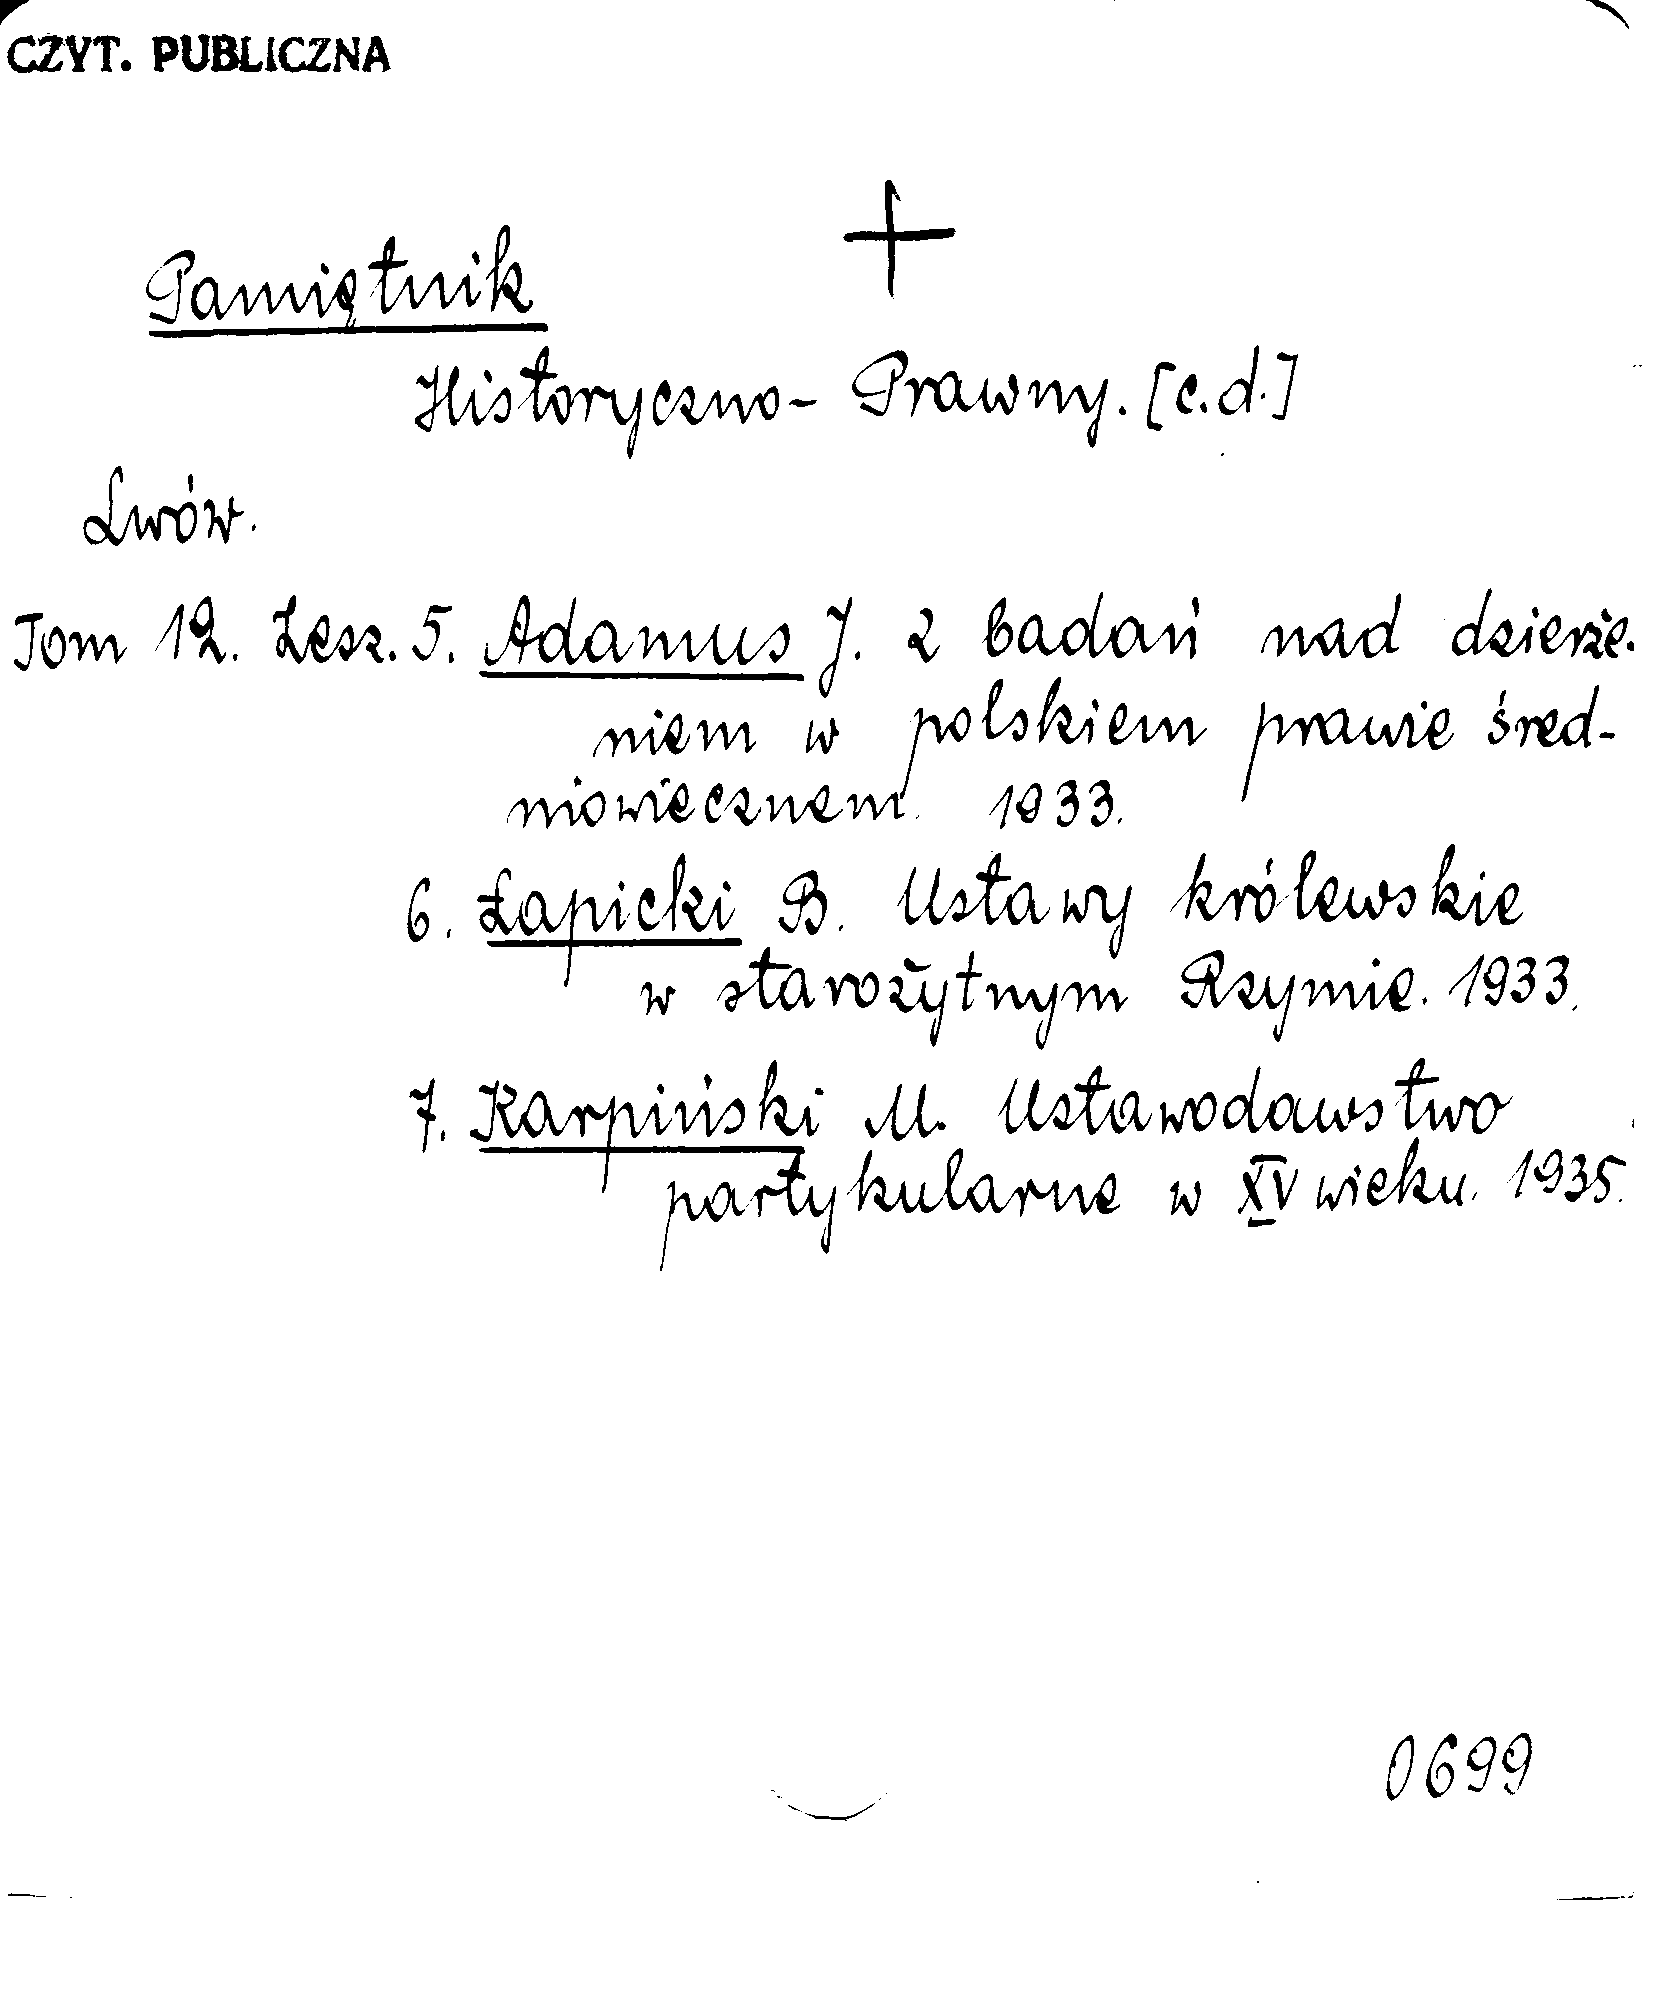 CZYT. PUBLICZNA
+
Pamiętnik
Historyczno-Prawny. [c.d.]
Lwów.
Tom 12. Zesz. 5. Adamus J. Z badań nad dzierże-
niem w polskiem prawie śred-
niowiecznem. 1933.
6. Łapicki B. Ustawy królewskie
w starożytnym Rzymie. 1933.
7. Karpiński M. Ustawodawstwo
partykularne w XV wieku. 1935.
0699